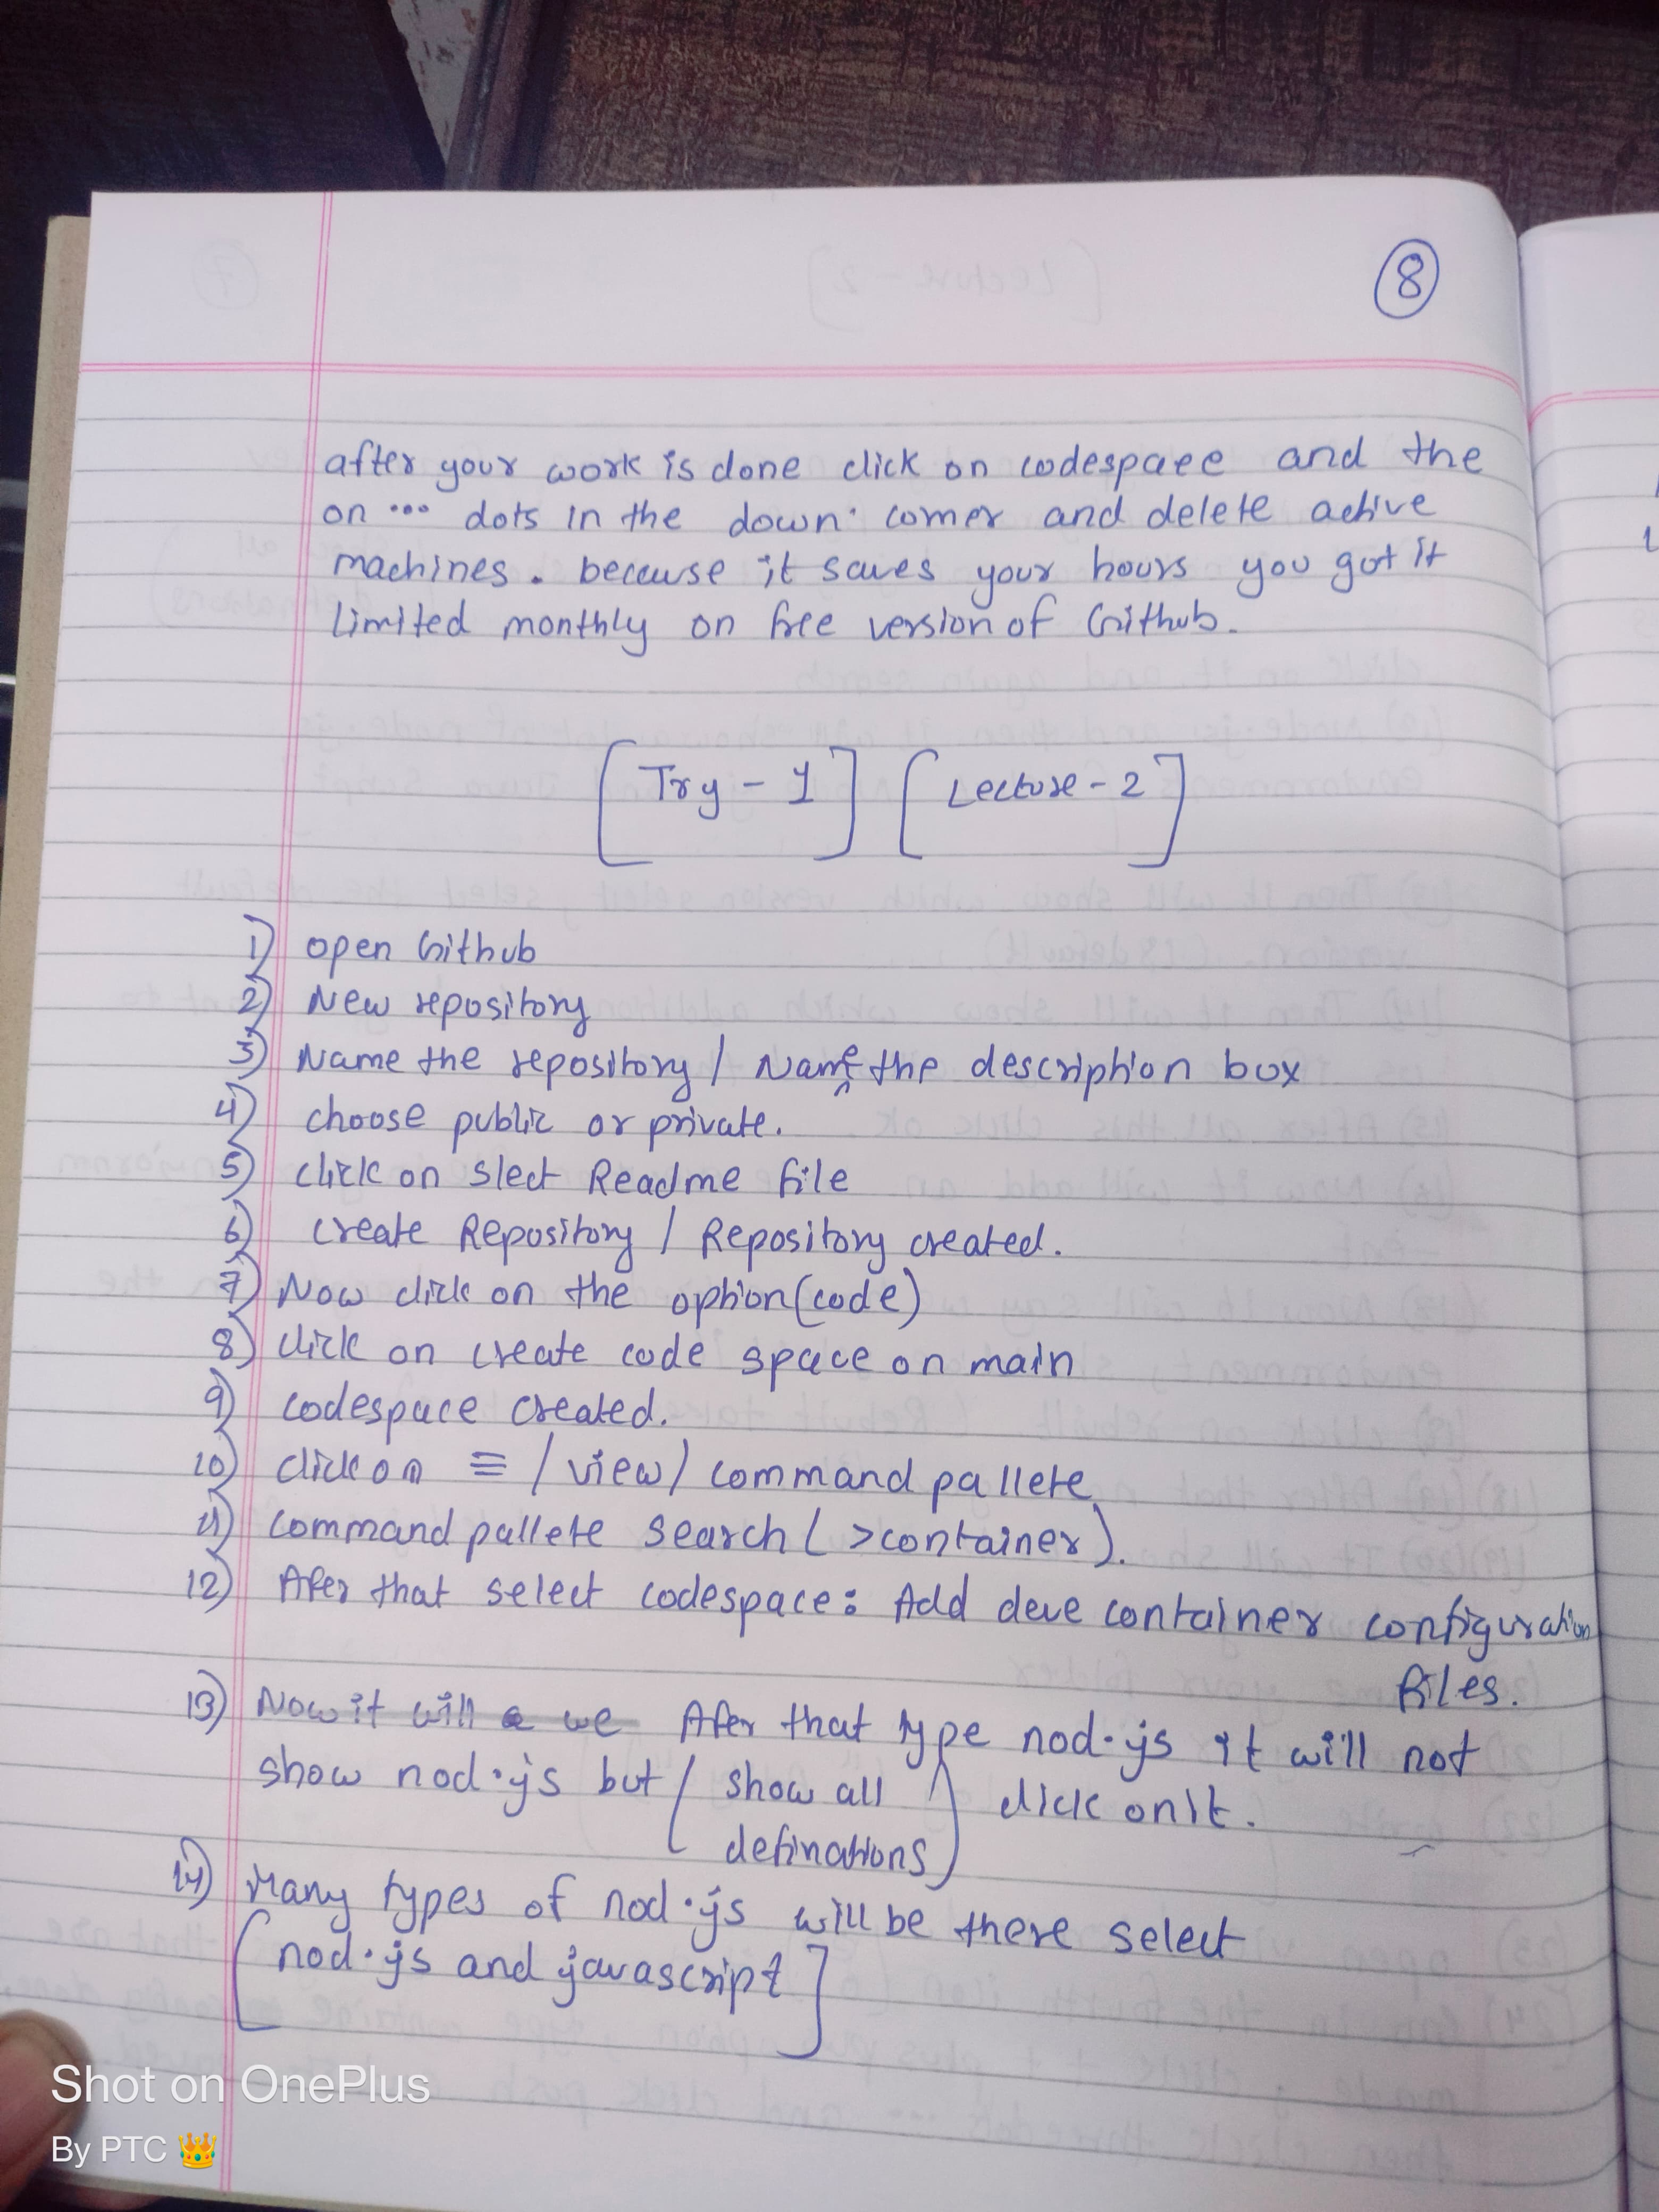 8
after your work is done click on codespace and the
on ... dots in the down corner and delete active
machines. because it saves your hours you got it
limited monthly on free version of Github.
[Try - 1] [Lecture - 2]
1) open Github
2) New repository
3) Name the repository / Name the description box
4) choose public or private.
5) click on slect Readme file
6) create Repository / Repository created.
7) Now click on the option(code)
8) click on create code space on main
9) codespace created.
10) click on ≡ / view / command pallete
11) command pallete search (>container).
12) Afer that select codespace: Add deve container configuration
files.
13) Now it will a we Afer that type nod.js it will not
show nod.js but (show all click on it.
definations)
14) Many types of nod.js will be there select
[nod.js and javascript]
Shot on OnePlus
By PTC 👑